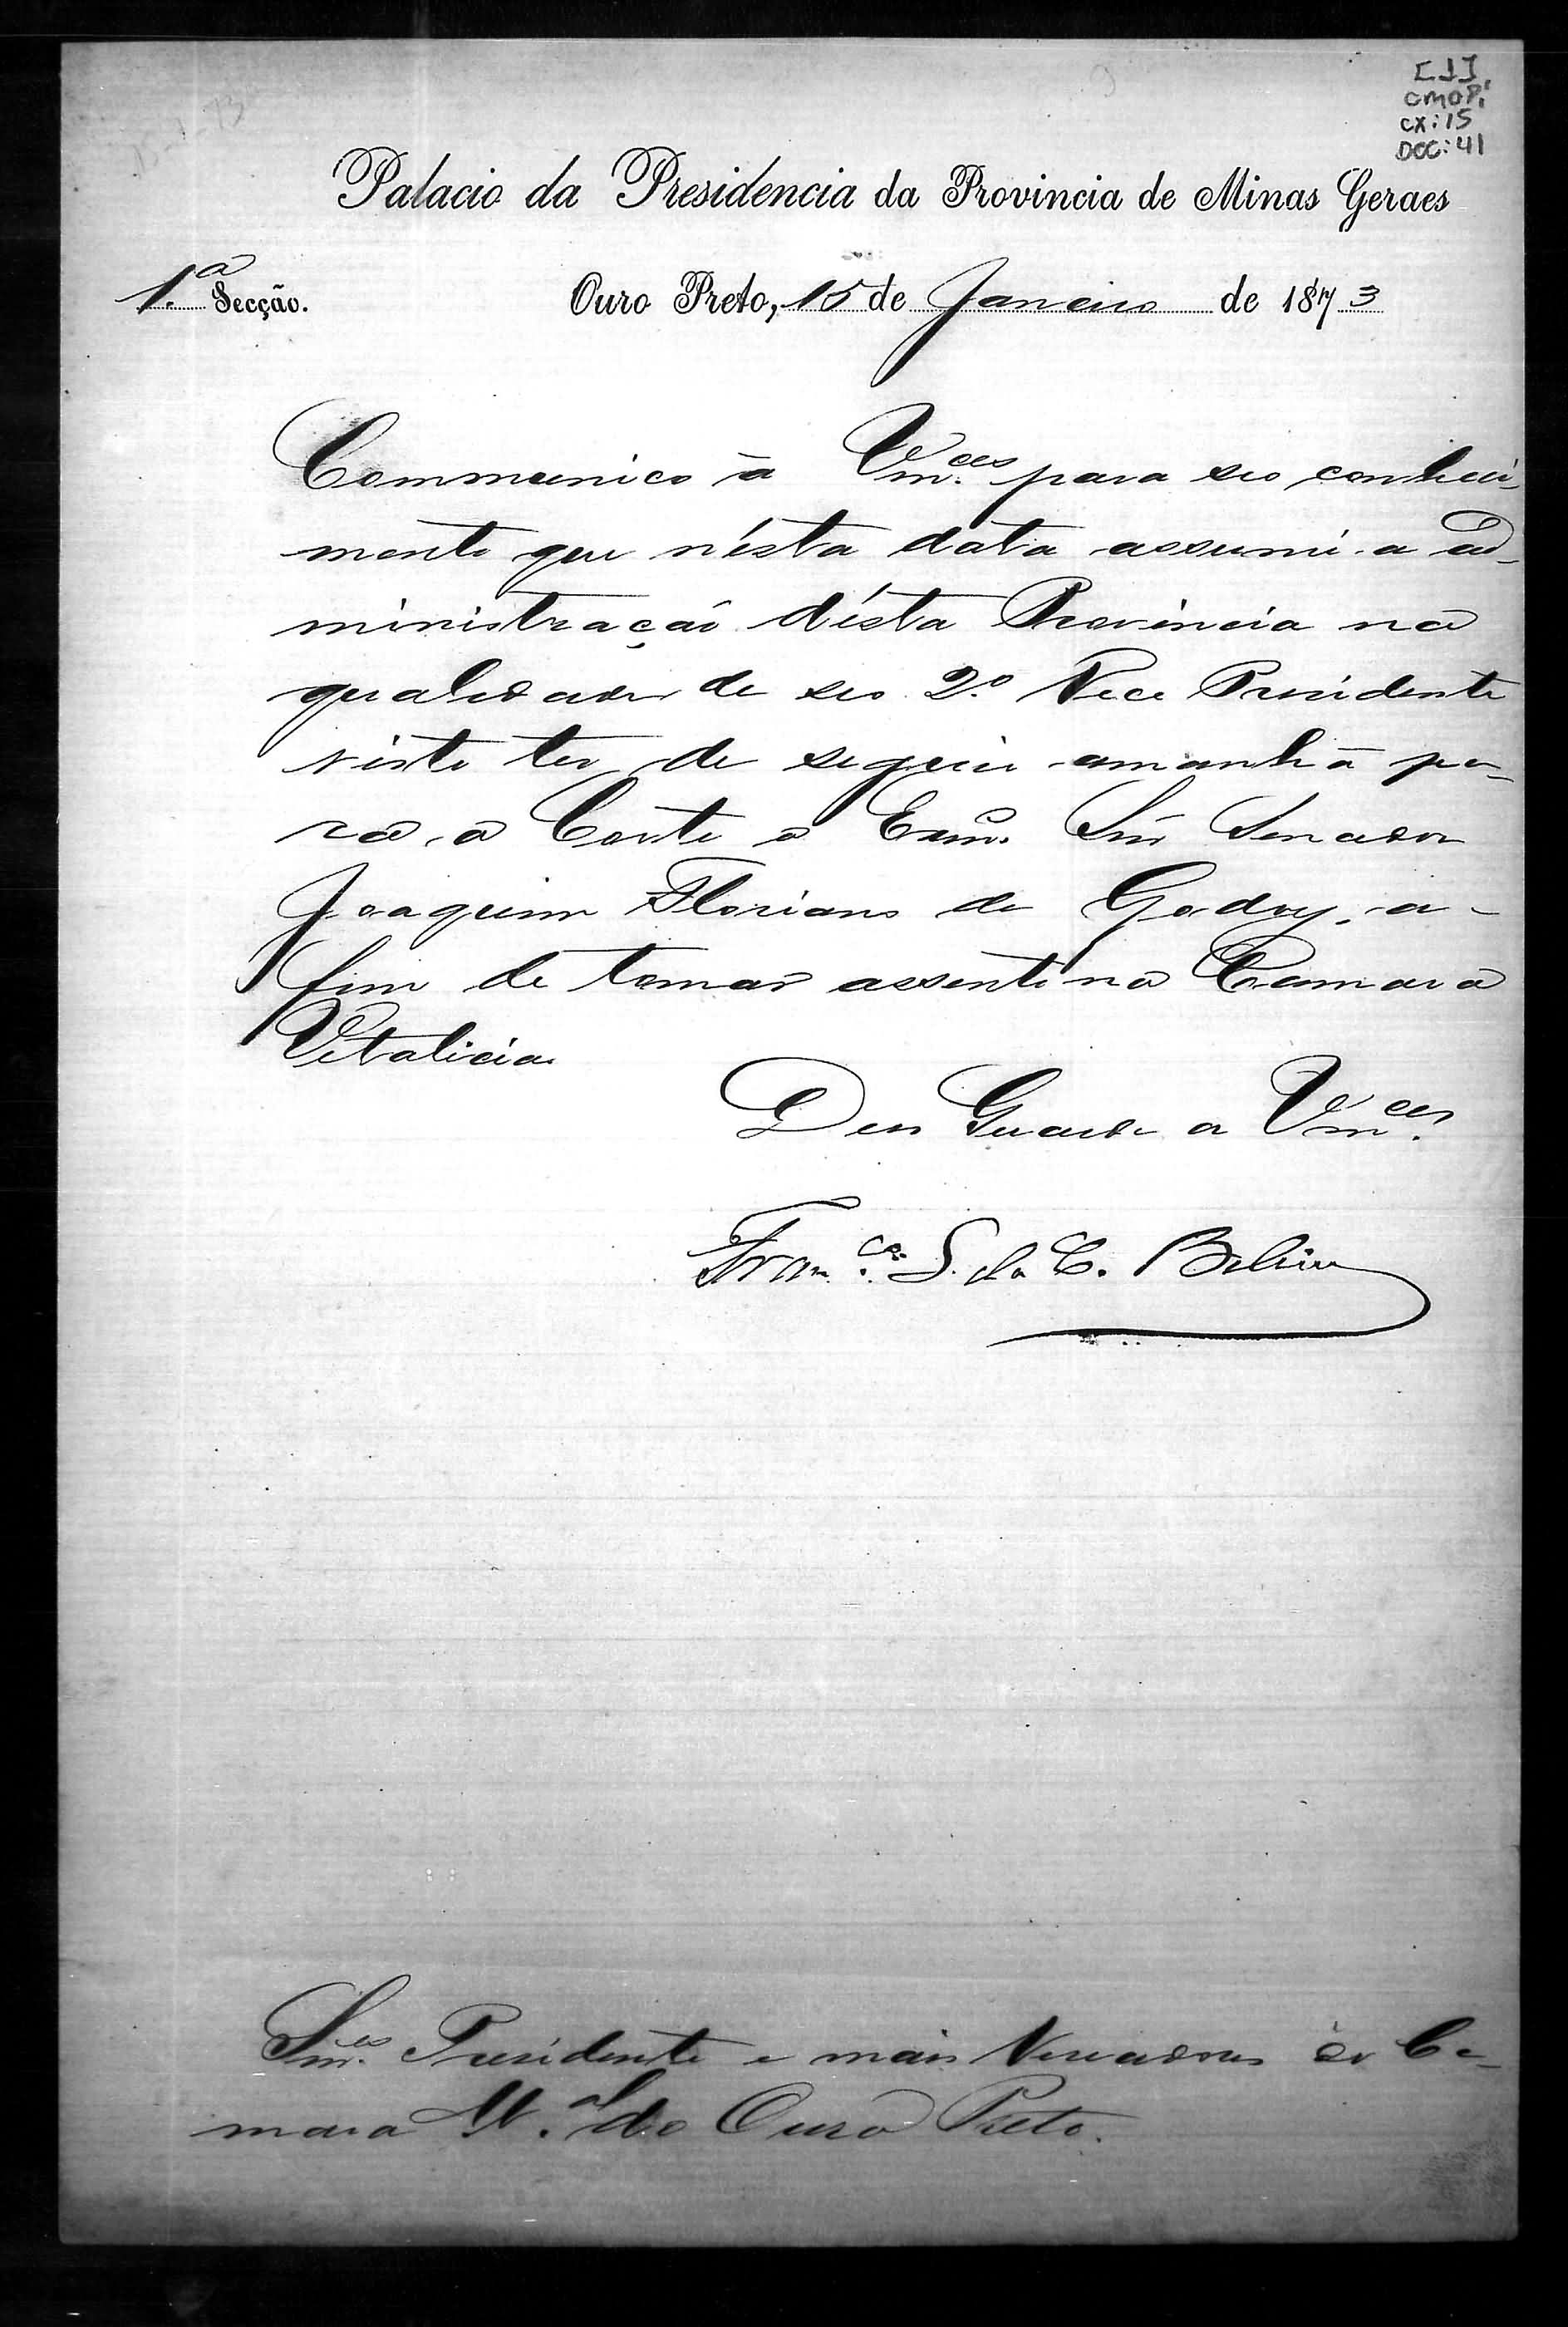 [1]
CMOP.
CX:15
DOC:41
Palacio da Presidencia da Provincia de Minas Geraes
1.ª Secção.
Ouro Preto, 15 de Janeiro de 1873
Communico à Vm.ces para seo conheci-
mento que n'ésta data assumi a ad-
ministração d'ésta Provincia na
qualidade de seo 2.º Vice Presidente
visto ter de seguir amanhã pa-
ra a Corte o Exm.º Snr̃ Senador
Joaquim Floriano de Godoy, a-
fim de tomar assento na Camara
Vitalicia
Deos Guarde a Vm.ces
Fran.co S. da C. Belem
Snr.es Presidente e mais Vereadores da Ca-
mara M.al do Ouro Preto.